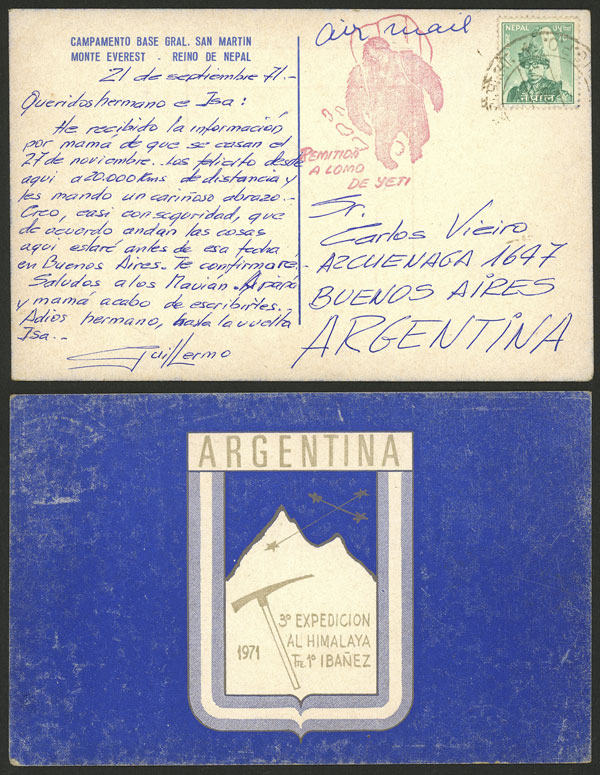 CAMPAMENTO BASE GRAL. SAN MARTIN
MONTE EVEREST - REINO DE NEPAL
21 de septiembre 71.-
Queridos hermano e Isa:
He recibido la información
por mamá de que se casan el
27 de noviembre. Los felicito desde
aqui a 20.000 Kms de distancia y
les mando un cariñoso abrazo.-
Creo, casi con seguridad, que
de acuerdo andan las cosas
aqui estaré antes de esa fecha
en Buenos Aires. Te confirmaré.
Saludos a los Mavian. A papá
y mamá acabo de escribirles.
Adios hermano, hasta la vuelta
Isa.-
Guillermo
air mail
REMITIDA
A LOMO
DE YETI
NEPAL
नेपाल
Sr.
Carlos Vieiro
AZCUENAGA 1647
BUENOS AIRES
ARGENTINA
ARGENTINA
1971
3º EXPEDICION
AL HIMALAYA
TTE. 1º IBAÑEZ